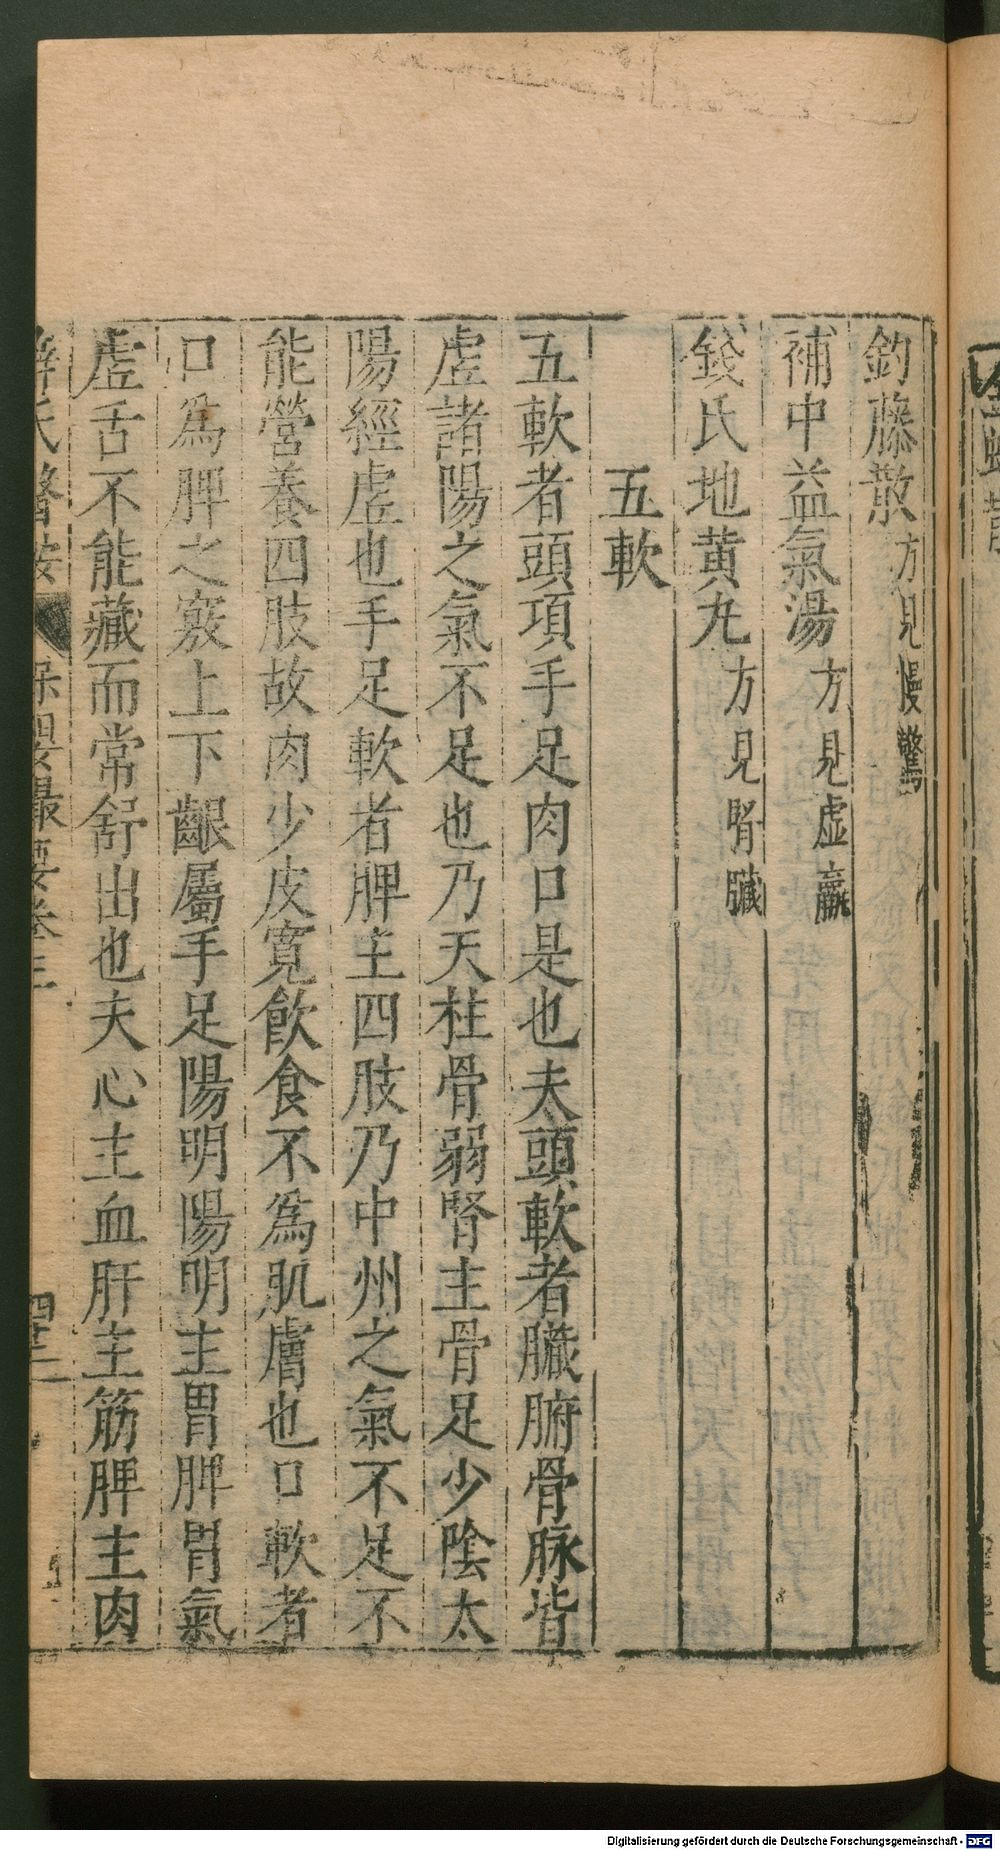 釣藤散方見慢驚
補中益氣湯方見虛羸
錢氏地黄丸方見腎臟
五軟
五軟者頭項手足肉口是也夫頭軟者臟腑骨脉皆
虛諸陽之氣不足也乃天柱骨弱腎主骨足少陰太
陽經虛也手足軟者脾主四肢乃中州之氣不足不
能營養四肢故肉少皮寛飲食不爲肌膚也口軟者
口爲脾之竅上下齦屬手足陽明陽明主胃脾胃氣
虛舌不能藏而常舒出也夫心主血肝主筋脾主肉
薛氏醫按 保嬰撮要卷三 四十二
Digitalisierung gefördert durch die Deutsche Forschungsgemeinschaft - DFG